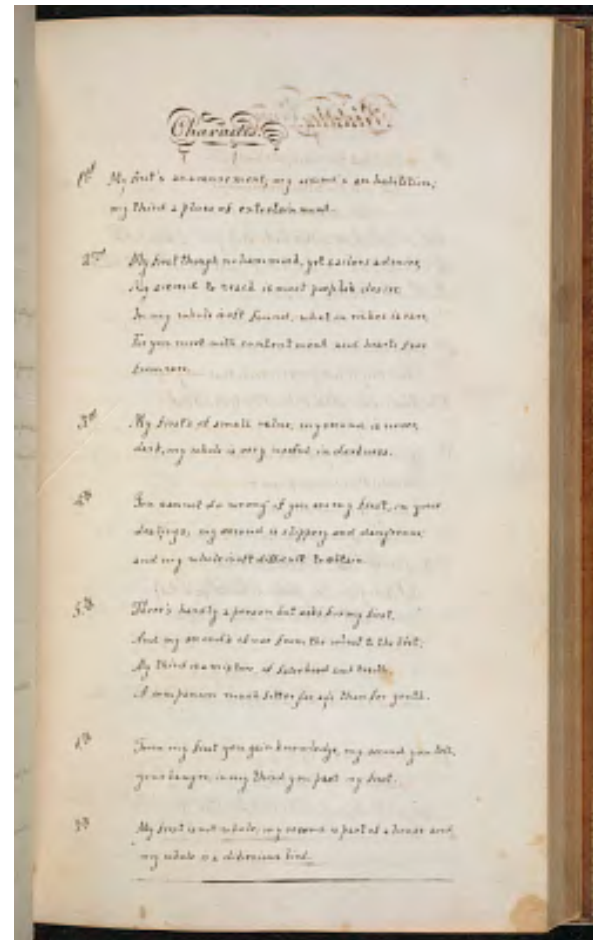 Charades.
1st My first's an amusement, my second's an habitation,
my third a place of entertainment.
2nd My first though no hammock, yet sailors admire,
My second to reach is most people's desire
In my whole is oft found, what in riches is rare,
For you meet with contentment and hearts free
from care.
3rd My first's of small value, my second is never
dark, my whole is very useful in darkness.
4th You cannot do wrong if you use my first, in your
dealings, my second is slippery and dangerous
and my whole is oft difficult to attain.
5th There's hardly a person but asks for my first,
And my second's of use from the wisest to the
My third is a mixture, of falsehood and truth,
A companion much fitter for age than for youth.
6th From my first you gain knowledge, my second you
your hunger, in my third you part my first.
7th My first is not whole, my second is part of a house and
my whole is a delicious bird.